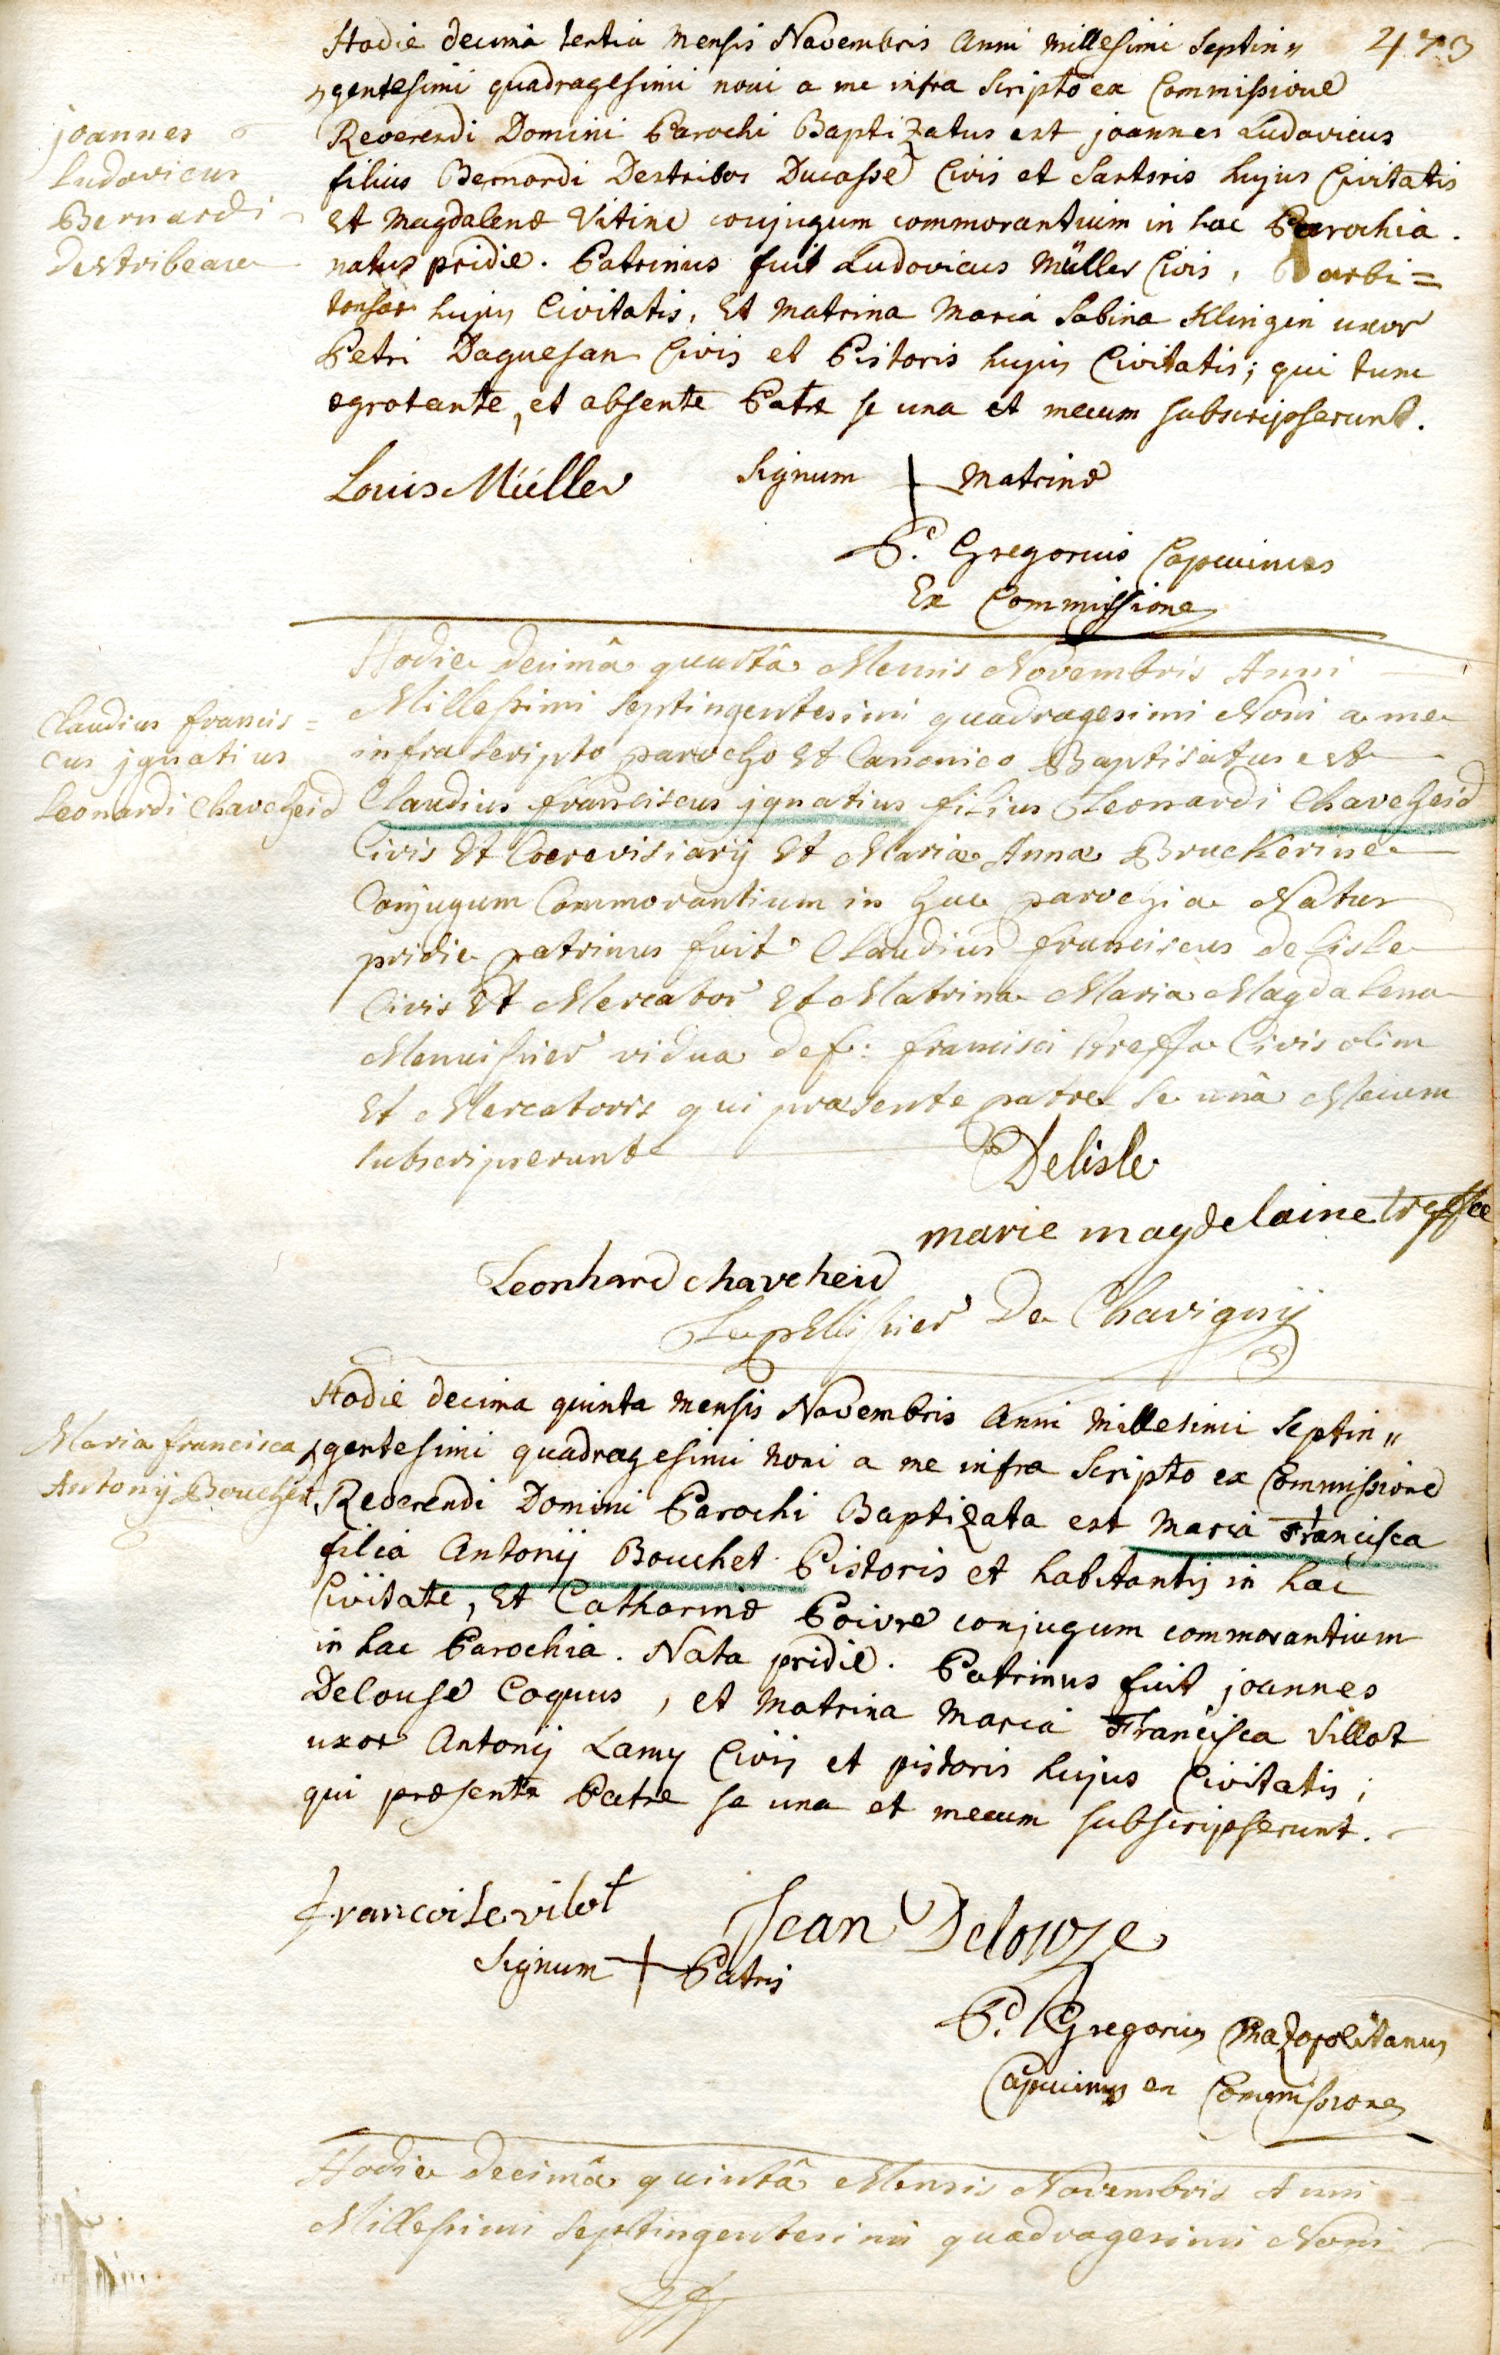 473
Hodie decima tertia mensis Novembris Anni millesimi septin„
„gentesimi quadragesimi noni a me infra scripto ex Commissione
Reverendi Domini Parochi Baptizatus est joannes Ludovicus
filius Bernardi Destribos Ducasse Civis et Sartoris hujus Civitatis
et Magdalenæ Vitine conjugum commorantium in hac Parochia.
natus pridie. Patrinus fuit Ludovicus Müller Civis, Barbi=
tonsor hujus Civitatis, Et Matrina Maria Sabina Klingin uxor
Petri Daguesan Civis et Pistoris hujus Civitatis; qui tunc
ægrotante, et absente Patre se una et mecum subscripserunt.
Louis Müller Signum + Matrinæ
P. Gregorius Capucinus
Ex Commissione
joannes
Ludovicus
Bernardi
Destribeaux
Hodie Decimâ quartâ Mensis Novembris Anni
Millesimi Septingentesimi quadragesimi Noni a me
infra scripto parocho Et Canonico Baptisatus est
Claudius franciscus ignatius filius Leonardi Chaveheid
Civis Et Cocrevisiarij Et Mariæ Annæ Bruckerinæ
Conjugum Commorantium in hac parochia Natus
pridie patrinus fuit Claudius franciscus de lisle
Civis Et Mercator Et Matrina Maria Magdalena
Menuissier vidua def: francisci treffse Civis olim
Et Mercatoris qui præsente patre se unâ Mecum
subscripserunt
Delisle
marie magdelaine treffse
Leonhard chaveheid
Lepellissier De Chavignij
Claudius francis=
cus jgnatius
Leonardi Chaveheid
Hodie decima quinta mensis Novembris Anni Millesimi Septin„
„gentesimi quadragesimi noni a me infra scripto ex Commissione
Reverendi Domini Parochi Baptizata est Maria Francisca
filia Antonij Bouchet Pistoris et habitantis in hac
Civitate, Et Catharinæ Poivre conjugum commorantium
in hac Parochia. Nata pridie. Patrinus fuit joannes
Delouse Coquus, et Matrina Maria Francisca Villot
uxor Antonij Lamy Civis et pistoris hujus Civitatis;
qui præsente Patre se una et mecum subscripserunt.
Maria francisca
Antonij Bouchet
francoise vilot Jean Delouze
Signum + Patris
P. Gregorius
Capucinus ex Commissione
Hodie Decimâ quintâ Mensis Novembris Anni
Millesimi Septingentesimi quadragesimi Noni